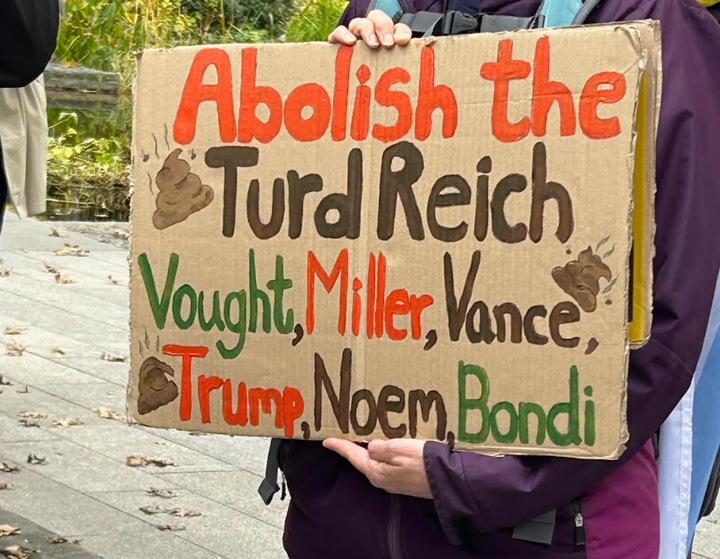 Abolish the
Turd Reich
Vought, Miller, Vance,
Trump, Noem, Bondi